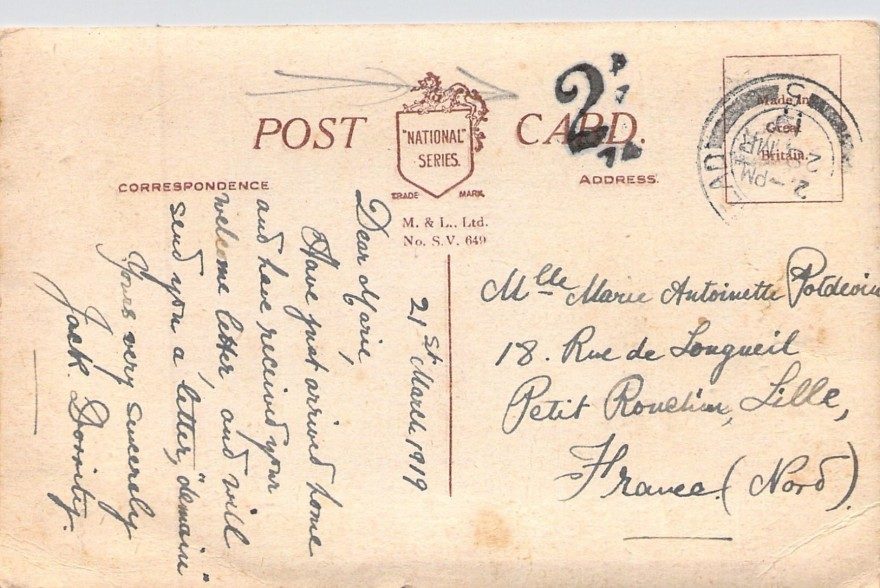 POST CARD.
"NATIONAL"
SERIES.
TRADE MARK.
CORRESPONDENCE
ADDRESS.
M. & L., Ltd.
No. S.V. 649
Made in
Great
Britain.
2
2 - PM
MR
19
21st March 1919
Dear Marie,
Have just arrived home
and have received your
welcome letter, and will
send you a letter, "demain"
Yours very sincerely
Jack.
Mlle Marie Antoinette Potdevin
18. Rue de Longueil
Petit Ronchin, Lille,
France. (Nord).